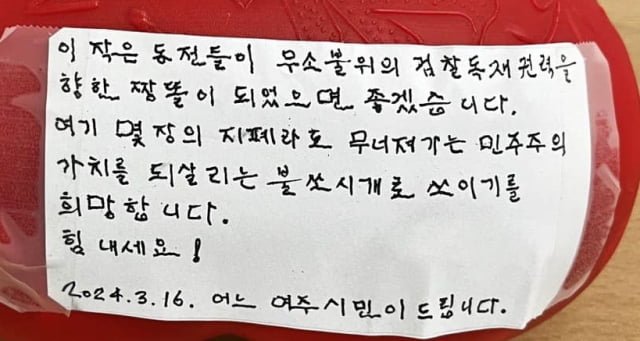 이 작은 동전들이 무소불위의 검찰독재권력을
향한 짱똘이 되었으면 좋겠습니다.
여기 몇장의 지폐라도 무너져가는 민주주의
가치를 되살리는 불쏘시개로 쓰이기를
희망합니다.
힘 내세요!
2024.3.16. 어느 여주시민이 드립니다.